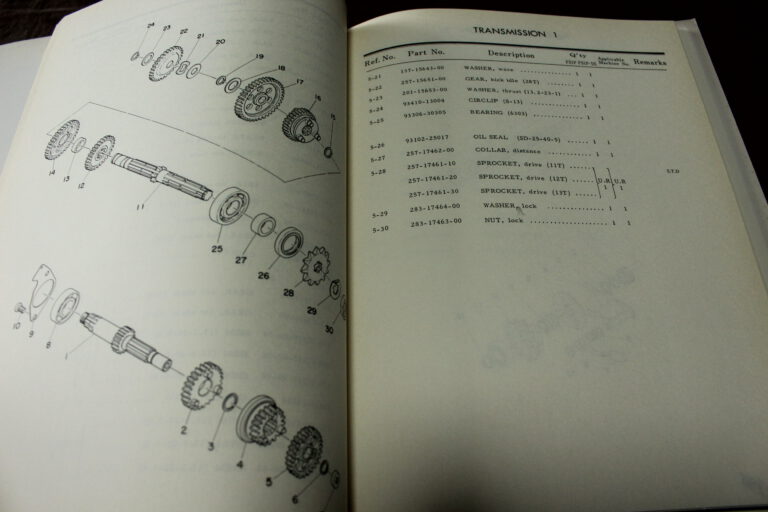 24
23
22
21
20
19
18
17
16
15
14
13
12
11
25
27
26
28
29
30
10
9
8
1
2
3
4
5
6
TRANSMISSION 1
Ref. No. Part No. Description Q'ty Applicable Machine No. Remarks
5-21 137-15643-00 WASHER, wave 1 1
5-22 257-15651-00 GEAR, kick idle (28T) 1 1
5-23 201-15653-00 WASHER, thrust (13.2-25-1) 1 1
5-24 93410-13004 CIRCLIP (S-13) 1 1
5-25 93306-30305 BEARING (6303) 1 1
5-26 93102-25017 OIL SEAL (SD-25-40-9) 1 1
5-27 257-17462-00 COLLAR, distance 1 1
5-28 257-17461-10 SPROCKET, drive (11T)
257-17461-20 SPROCKET, drive (12T) U.R 1 U.R 1 STD
257-17461-30 SPROCKET, drive (13T)
5-29 283-17464-00 WASHER, lock 1 1
5-30 283-17463-00 NUT, lock 1 1